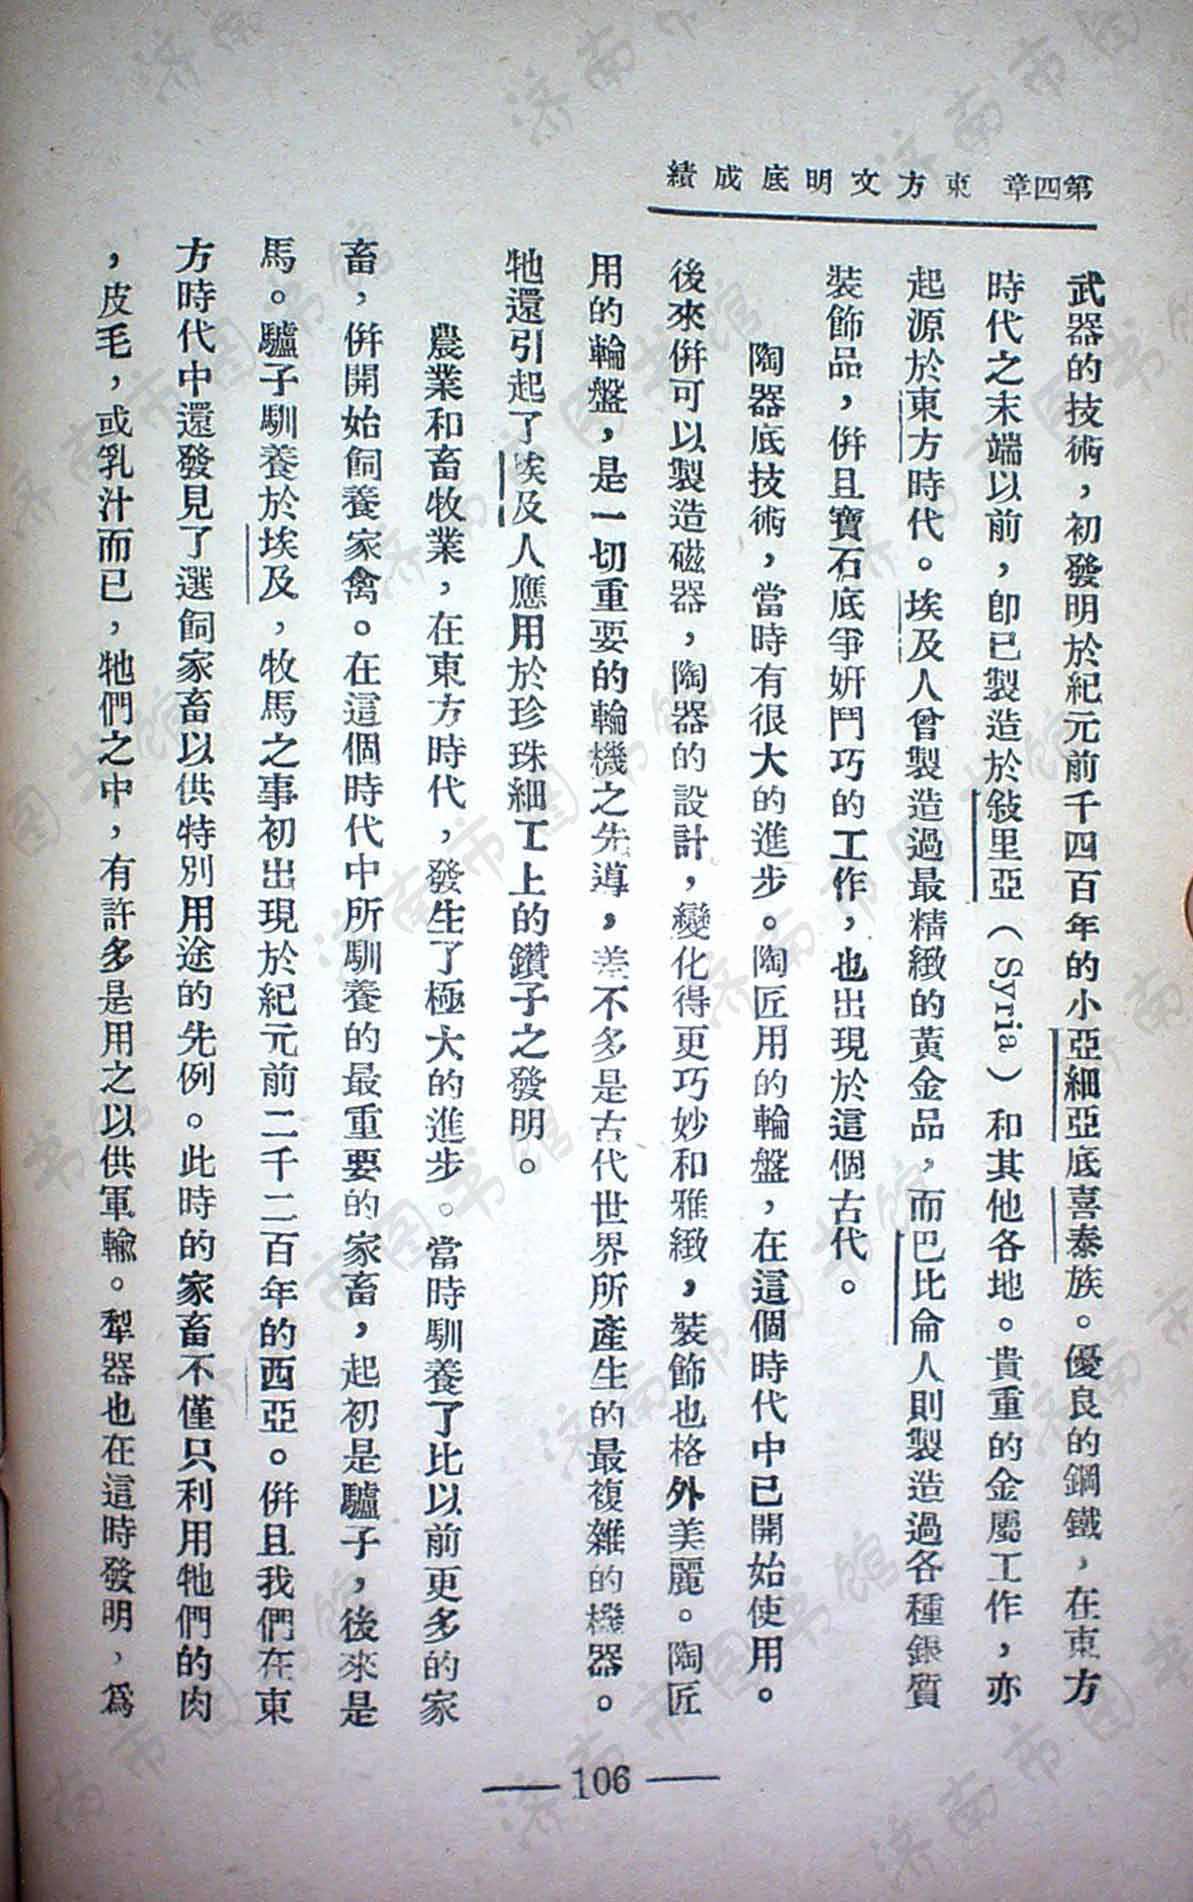 第四章 東方文明底成績
武器的技術，初發明於紀元前千四百年的小亞細亞底喜泰族。優良的鋼鐵，在東方
時代之末端以前，卽已製造於敍里亞（Syria）和其他各地。貴重的金屬工作，亦
起源於東方時代。埃及人曾製造過最精緻的黃金品，而巴比侖人則製造過各種銀質
裝飾品，倂且寶石底爭妍鬥巧的工作，也出現於這個古代。
陶器底技術，當時有很大的進步。陶匠用的輪盤，在這個時代中已開始使用。
後來倂可以製造磁器，陶器的設計，變化得更巧妙和雅緻，裝飾也格外美麗。陶匠
用的輪盤，是一切重要的輪機之先導，差不多是古代世界所產生的最複雜的機器。
牠還引起了埃及人應用於珍珠細工上的鑽子之發明。
農業和畜牧業，在東方時代，發生了極大的進步。當時馴養了比以前更多的家
畜，倂開始飼養家禽。在這個時代中所馴養的最重要的家畜，起初是驢子，後來是
馬。驢子馴養於埃及，牧馬之事初出現於紀元前二千二百年的西亞。倂且我們在東
方時代中還發見了選飼家畜以供特別用途的先例。此時的家畜不僅只利用牠們的肉
，皮毛，或乳汁而已，牠們之中，有許多是用之以供軍輸。犁器也在這時發明，爲
—106—
济南市图书馆